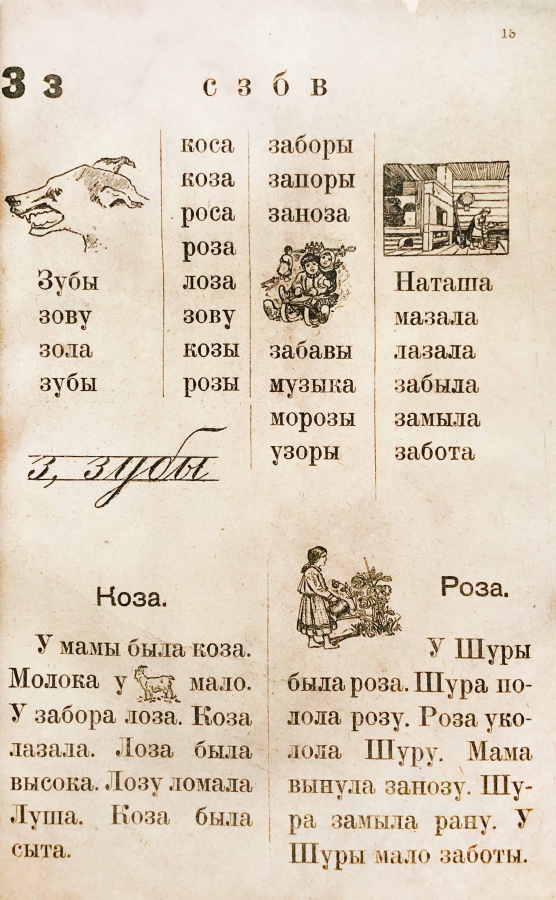 15
З з
с з б в
Зубы
зову
зола
зубы
коса
коза
роса
роза
лоза
зову
козы
розы
заборы
запоры
заноза
забавы
музыка
морозы
узоры
Наташа
мазала
лазала
забыла
замыла
забота
з, зубы
Коза.
У мамы была коза.
Молока у мало.
У забора лоза. Коза
лазала. Лоза была
высока. Лозу ломала
Луша. Коза была
сыта.
Роза.
У Шуры
была роза. Шура по-
лола розу. Роза уко-
лола Шуру. Мама
вынула занозу. Шу-
ра замыла рану. У
Шуры мало заботы.